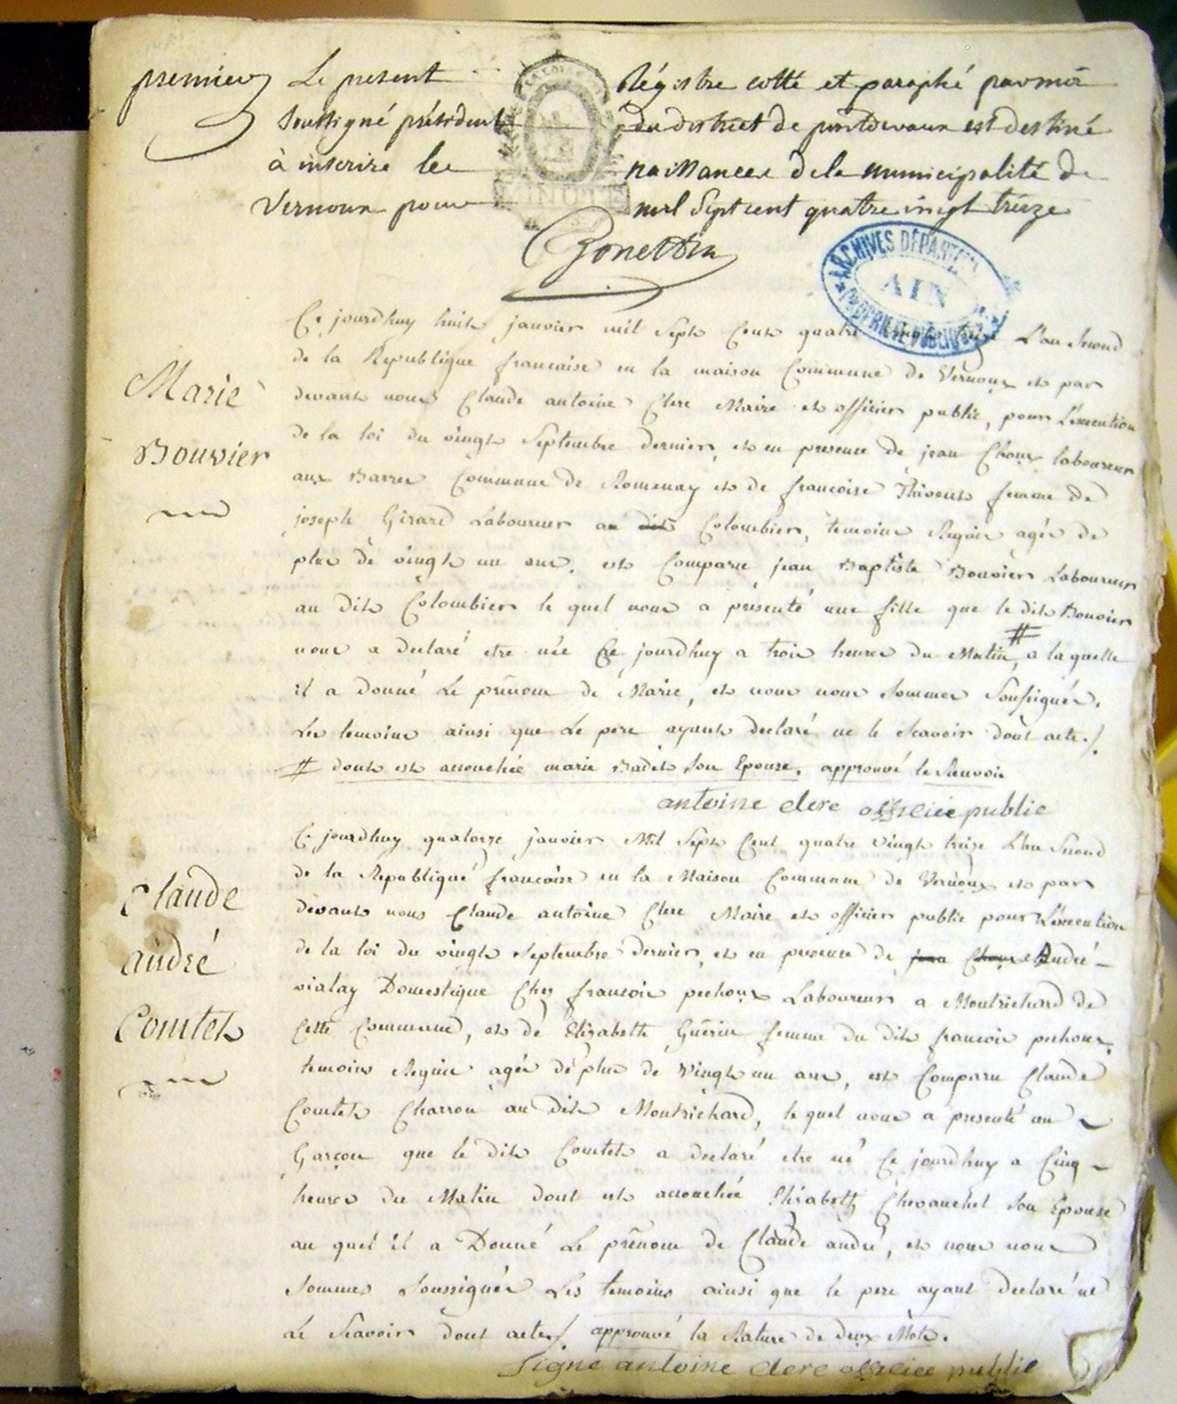 premier Le present Régistre cotté et paraphé par moi
soussigné président du district de pontdevaux est destiné
à inscrire les naissances de la municipalité de
Vernoux pour mil sept cent quatre vingt treize
ARCHIVES DÉPARTEM
AIN
PROPRIÉTÉ PUBLIQUE
Marie
Bouvier
Ce jourdhuy huit janvier mil Sept Cent quatre vingt treize L'an Second
de la Republique francaise en la maison Commune de Vernoux et par
devant nous Claude antoine Clerc Maire et officier public, pour L'execution
de la loi du vingt Septembre dernier, et en presence de jean Choux laboureur
aux Barres Commune de Romenay et de francoise Thivent femme de
joseph Girard Laboureur au dit Colombier, temoins Requis agés de
plus de vingt un ans. est Comparu jean Baptiste Bouvier Laboureur
au dit Colombier le quel nous a présenté une fille que le dit Bouvier
nous a declaré etre née Ce jourdhuy a trois heures du Matin, # a la quelle
il a donné Le prénom de Marie, et nous nous Sommes Soussignés.
Les temoins ainsi que Le pere ayant declaré ne le Scavoir dont acte ./.
# dont est accouchée marie Badet Son Epouse, approuvé le Renvoi
antoine clerc officie public
Claude
andré
Comtet
Ce jourdhuy quatorze janvier Mil Sept Cent quatre vingt treize L'an Second
de la Republique francoise en la Maison Commune de Vernoux et par
devant nous Claude antoine Clerc Maire et officier public pour L'execution
de la loi du vingt Septembre dernier, et en presence de jean Choux André
vialay Domestique Chez francois pechoux Laboureur a Montrichard de
Cette Commune, et de Elisabeth Guérin femme du dit francois pechoux,
temoins Requis agés de plus de Vingt un ans, est Comparu Claude
Comtet Charron au dit Montrichard, le quel nous a presenté un
Garçon que le dit Comtet a declaré etre né Ce jourdhuy a Cinq
heures du Matin dont est accouchée Elisabeth Chevauchet Son Epouse
au quel il a Donné Le prénom de Claude andré, et nous nous
Sommes Soussignés Les temoins ainsi que le pere ayant declaré ne
Le Scavoir dont acte ./. approuvé la Rature de deux Mots.
Signe antoine clerc officie public